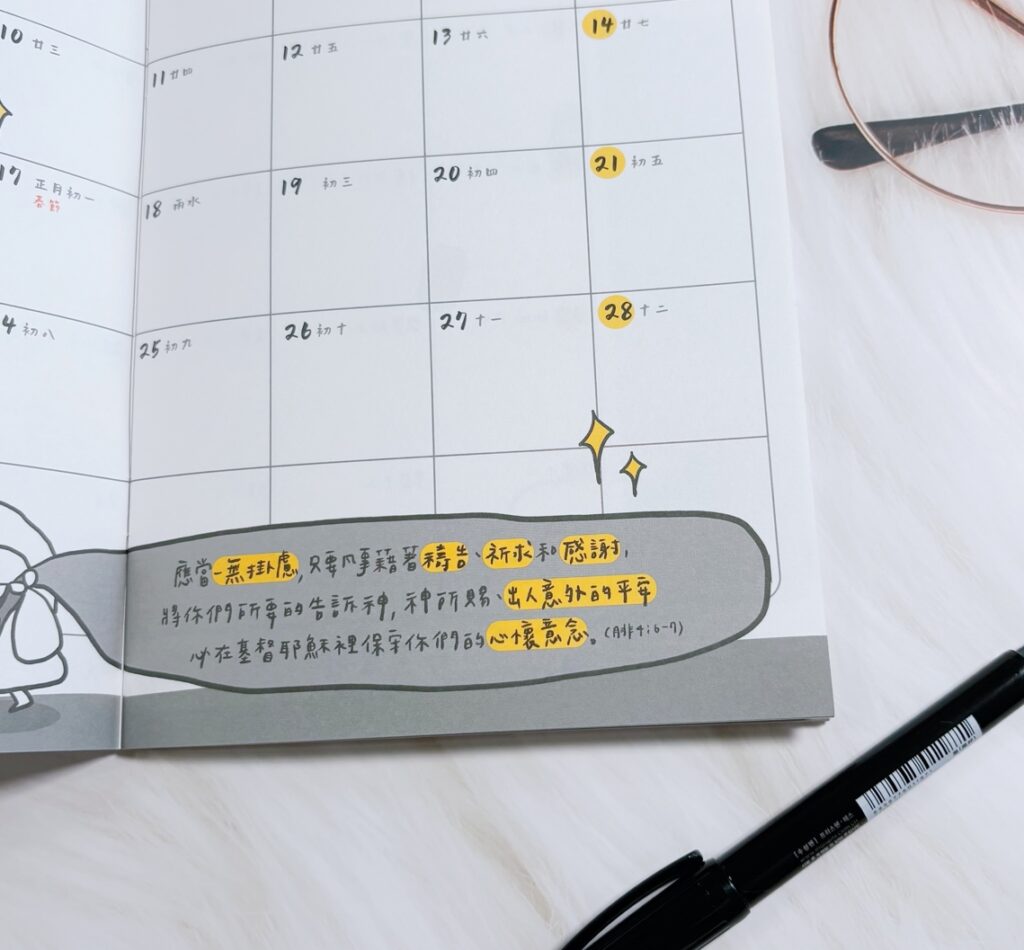 10 廿三
11 廿四
12 廿五
13 廿六
14 廿七
17 正月初一
春節
18 雨水
19 初三
20 初四
21 初五
4 初八
25 初九
26 初十
27 十一
28 十二
應當一無掛慮,只要凡事藉著禱告、祈求和感謝,
將你們所要的告訴神,神所賜、出人意外的平安
必在基督耶穌裡保守你們的心懷意念。(腓4:6-7)